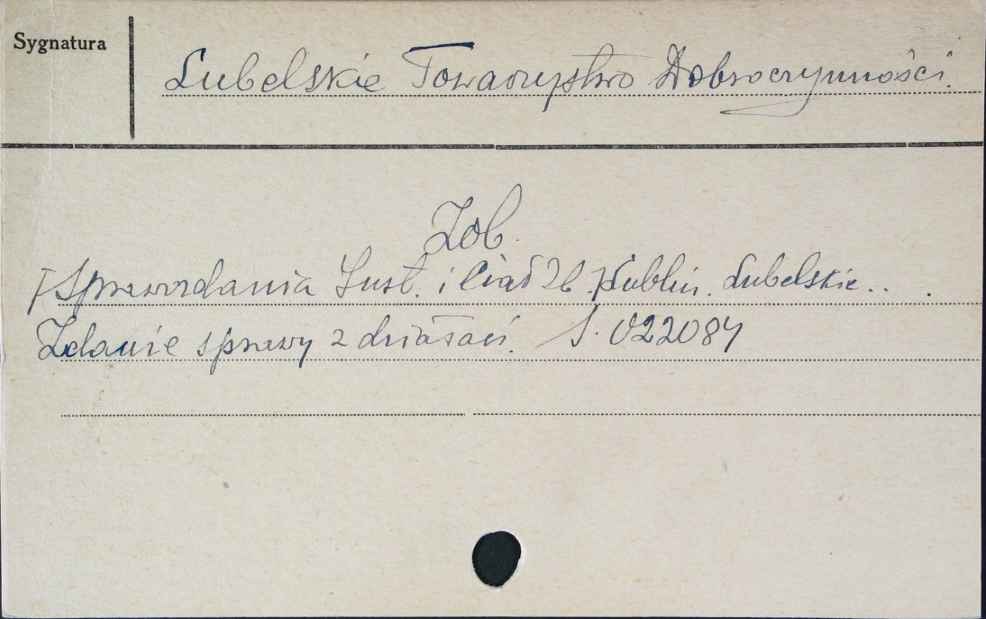 Sygnatura
Lubelskie Towarzystwo Dobroczynności.
Zob.
[Sprawozdania Inst. i Ciał Zb.] Lublin. Lubelskie...
Zdanie sprawy z działan. S. 022084